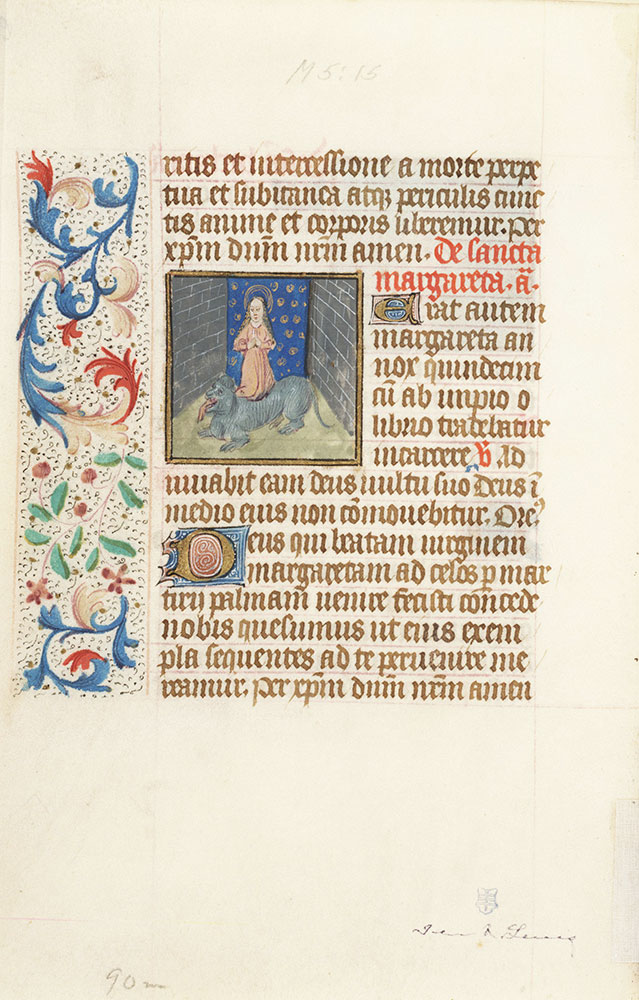 M 5:15
ritis et intercessione a morte perpe
tua et subitanea atqꝫ periculis cunc
tis anime et corporis liberemur. Per
xp̄m dn̄m nr̄m amen. De sancta
margareta. a̅.
Erat autem
margareta an
nox quindecim
cū ab impio o
librio tradebatur
in carcere ℣ Ad
iuuabit eam deus uultu suo Deus ī
medio eius non cōmouebitur. Orc̄
Deus qui beatam uirginem
margaretam ad celos p mar
tirij palmam uenire fecisti concede
nobis quesumus ut eius exem
pla sequentes ad te peruenire me
reamur. Per xp̄m dn̄m nr̄m amen
90